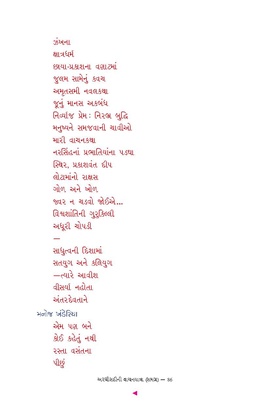 ઝંખના
ક્ષાત્રધર્મ
છાયા-પ્રકાશના વણાટમાં
જુલમ સામેનું કવચ
અમૃતસમી નવલકથા
જૂનું માનસ અકબંધ
નિર્વ્યાજ પ્રેમ: નિરભ્ર બુદ્ધિ
મનુષ્યને સમજવાની ચાવીઓ
મારી વાચનકથા
નરસિંહનાં પ્રભાતિયાંના પડઘા
સ્થિર, પ્રકાશવંત દીપ
લોટામાંનો રાક્ષસ
ગોળ અને ખોળ
જ્વર ન ચડવો જોઈએ…
વિશ્વશાંતિની ગુરુકિલ્લી
અધૂરી ચોપડી
—
સાધુત્વની દિશામાં
સતયુગ અને કલિયુગ
—ત્યારે આવીશ
વીસર્યાં નહોતા
અંતરદેવતાને
મનોજ ખંડેરિયા
એમ પણ બને
કોઈ કહેતું નથી
રસ્તા વસંતના
પીછું
અરધી સદીની વાચનયાત્રા (૧થી૫) —